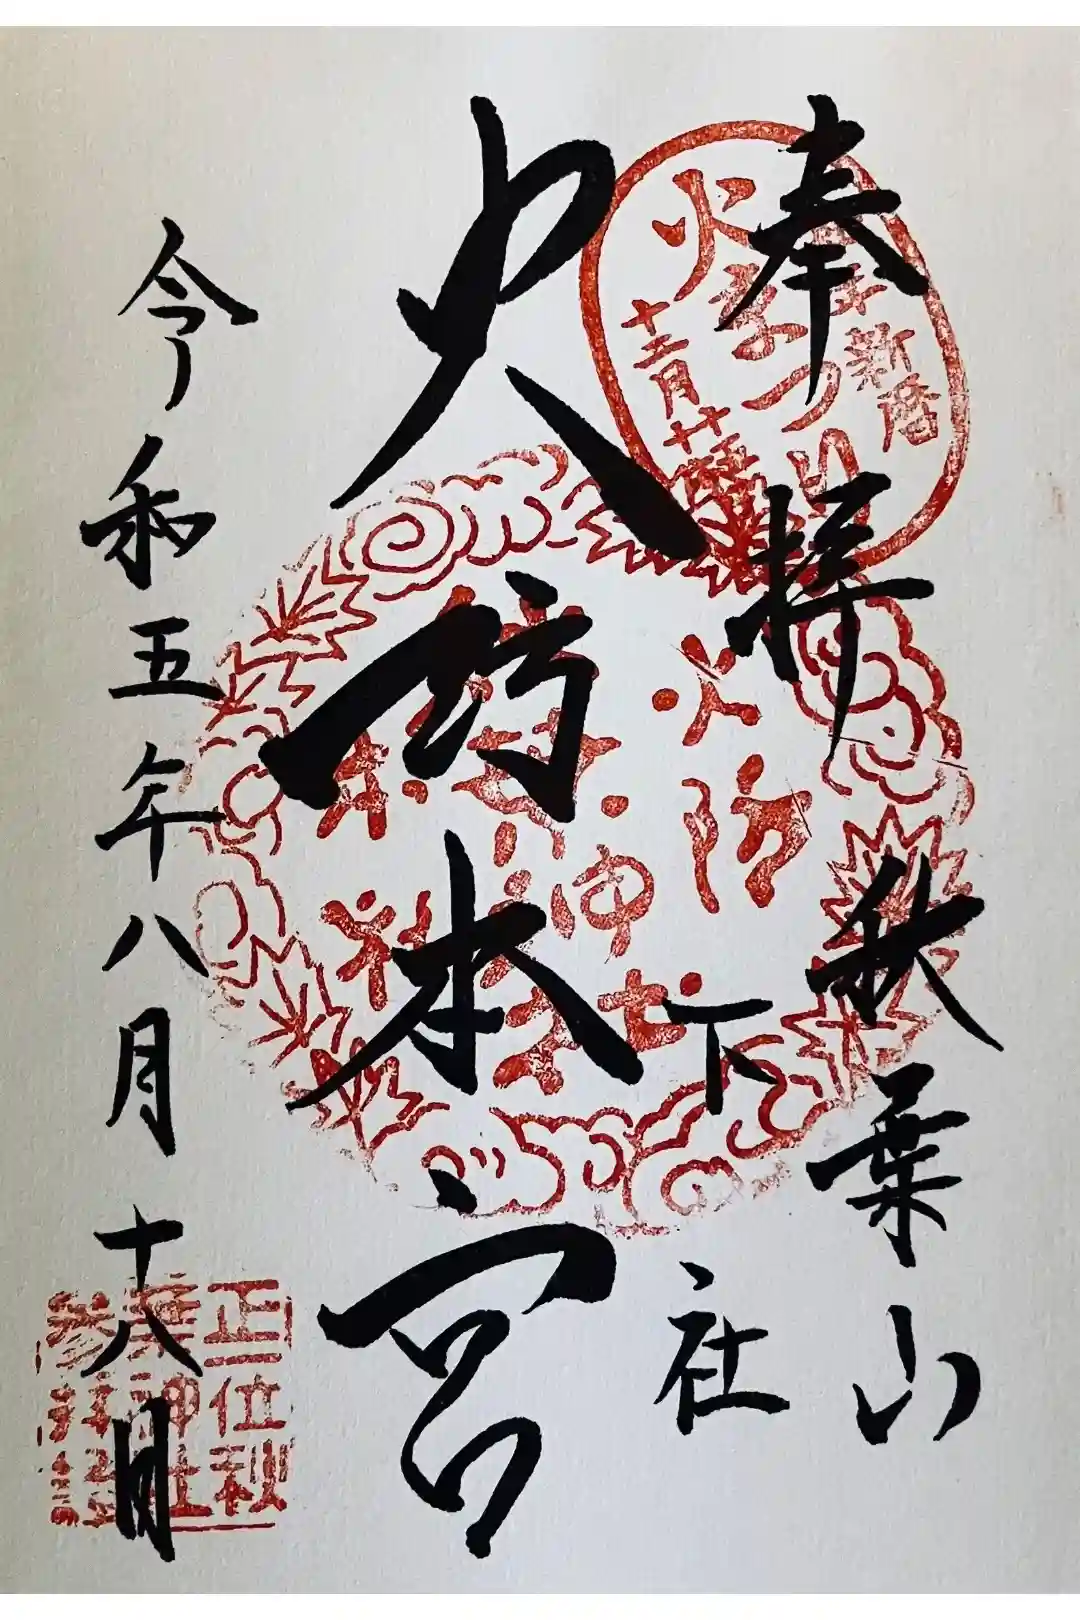 奉拝 秋葉山
下社
火防本宮
令和五年八月十八日
新暦
火まつり
十二月廿
火防
神社
正一位秋
葉神社
参拝